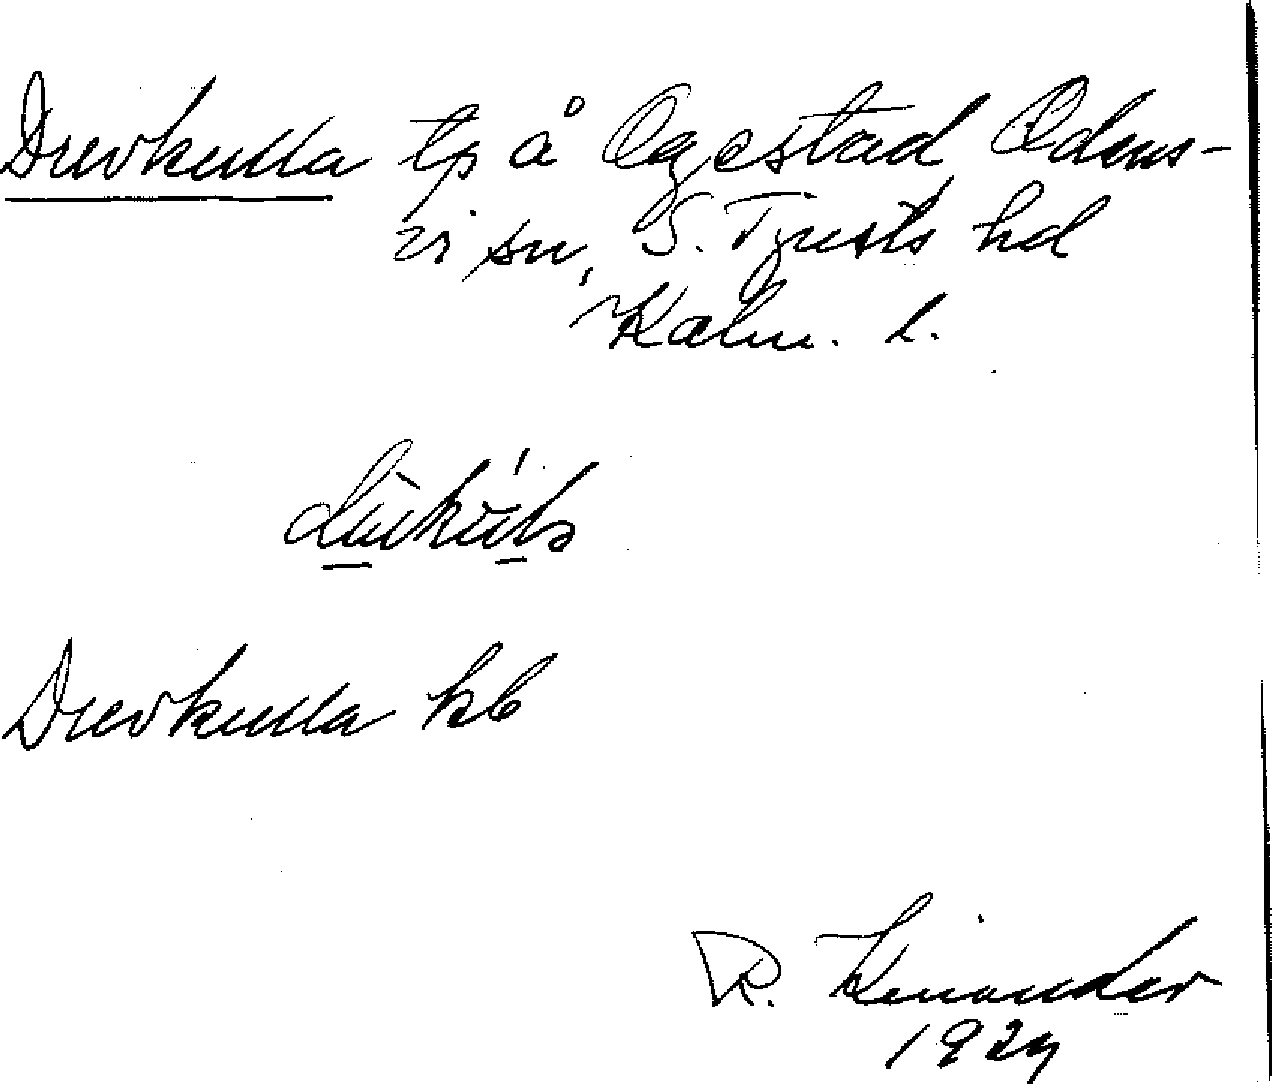 Drevkulla tp å Ogestad Odens-
vi sn, S. Tjusts hd
Kalm. l.
Drevkulla kb
R. Kinander
1929